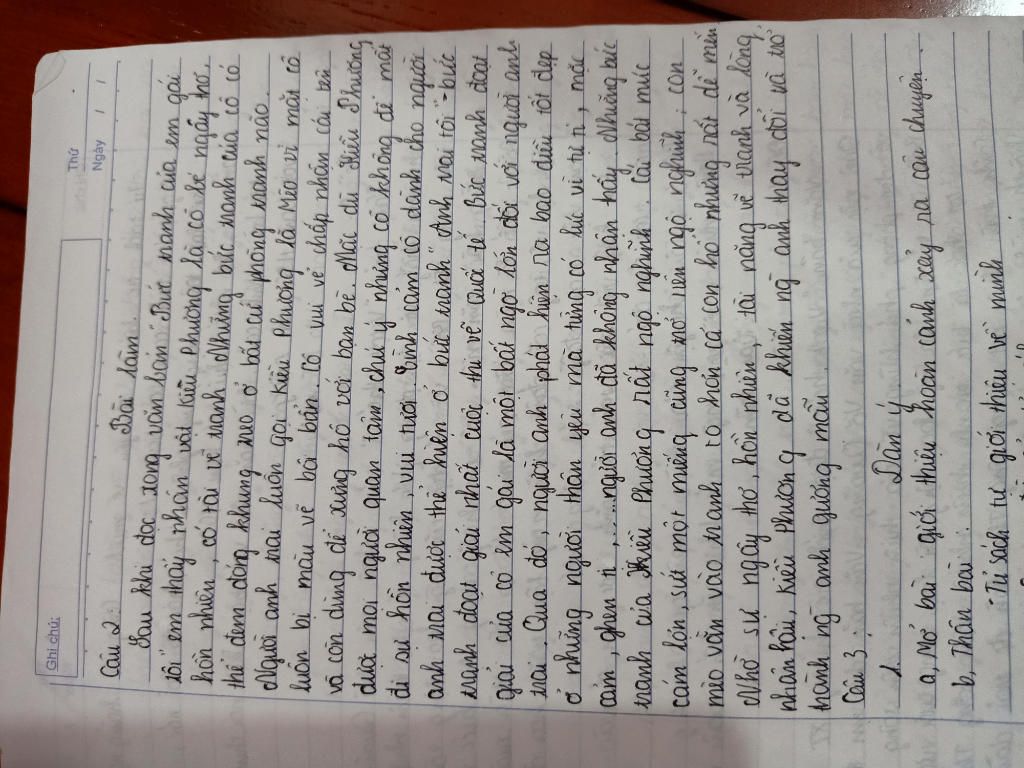 Ghi chú:
Thứ
Ngày / /
Câu 2: Bài làm
Sau khi đọc xong văn bản "Bức tranh của em gái
tôi" em thấy nhân vật Kiều Phương là cô bé ngây thơ
hồn nhiên, có tài vẽ tranh. Những bức tranh của cô có
thể đem đóng khung treo ở bất cứ phòng tranh nào.
Người anh trai luôn gọi Kiều Phương là mèo vì mặt cô
luôn bị màu vẽ bôi bẩn. Cô vui vẻ chấp nhận cái tên
và còn dùng để xưng hô với bạn bè. Mặc dù Kiều Phương
được mọi người quan tâm, chú ý nhưng cô không để mất
đi sự hồn nhiên, vui tươi. Tình cảm cô dành cho người
anh trai được thể hiện ở bức tranh "Anh trai tôi" - bức
tranh đoạt giải nhất cuộc thi vẽ Quốc tế. Bức tranh đoạt
giải của cô em gái là một bất ngờ lớn đối với người anh
trai. Qua đó, người anh phát hiện ra bao điều tốt đẹp
ở những người thân yêu mà từng có lúc vì tự ti, mặc
cảm, ghen tị,.... người anh đã không nhận thấy. Những bức
tranh của Kiều Phương rất ngộ nghĩnh. Cái bát múc
cám lớn, sứt một miếng cũng trở nên ngộ nghĩnh, con
mèo vằn vào tranh to hơn cả con hổ nhưng rất dễ mến.
Nhờ sự ngây thơ, hồn nhiên, tài năng vẽ tranh và lòng
nhân hậu, Kiều Phương đã khiến ng anh thay đổi và trở
thành ng anh gương mẫu.
Câu 3:
1. Dàn ý
a, Mở bài giới thiệu hoàn cảnh xảy ra câu chuyện.
b, Thân bài:
- Tủ sách tự giới thiệu về mình